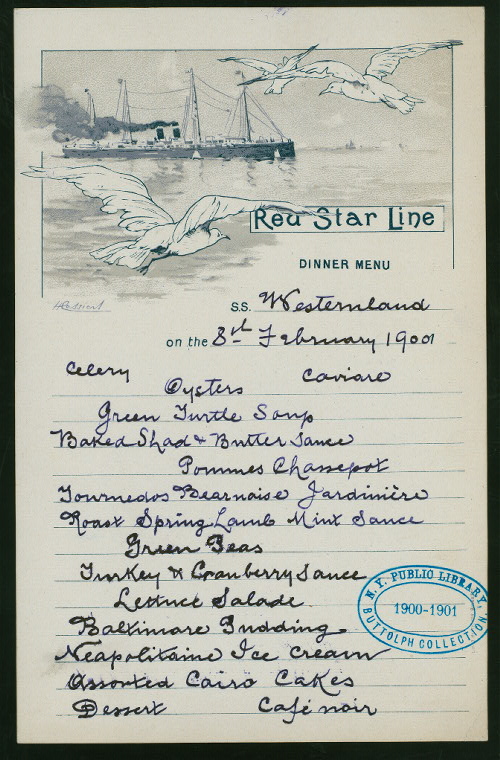 Red Star Line
DINNER MENU
S.S. Westernland
on the 8th February 1901
Celery Caviare
Oysters
Green Turtle Soup
Baked Shad & Butter Sauce
Pommes Chassepot
Tournedos Bearnaise Jardinière
Roast Spring Lamb Mint Sauce
Green Peas
Turkey & Cranberry Sauce
Lettuce Salade
Baltimore Pudding
Neapolitaine Ice Cream
Assorted Cairo Cakes
Dessert Café noir
N.Y. PUBLIC LIBRARY,
1900-1901
BUTTOLPH COLLECTION.